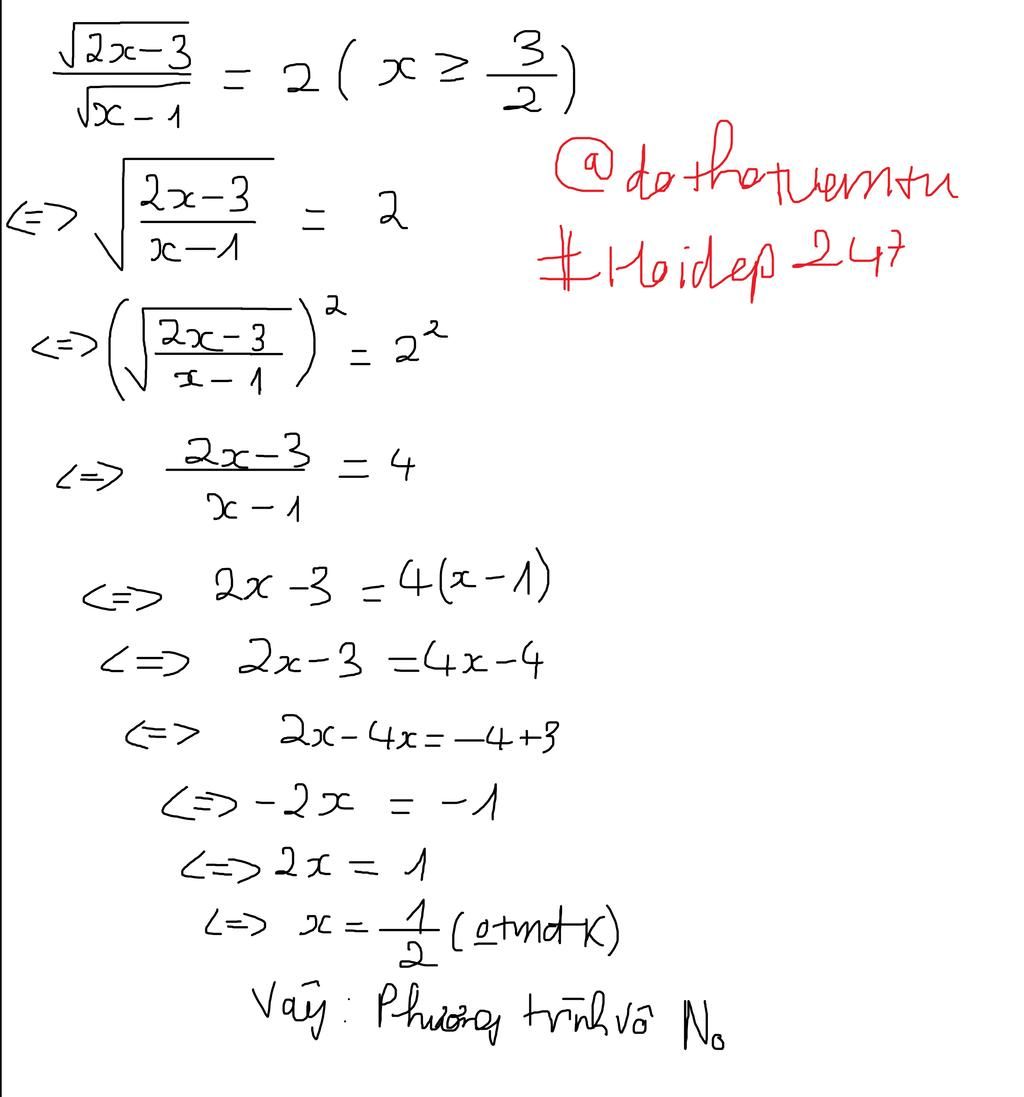 √(2x-3) / √(x-1) = 2 ( x ≥ 3/2 )
<=> √((2x-3)/(x-1)) = 2
@dothatuemtu
#Hoidap247
<=> (√((2x-3)/(x-1)))² = 2²
<=> (2x-3)/(x-1) = 4
<=> 2x-3 = 4(x-1)
<=> 2x-3 = 4x-4
<=> 2x-4x = -4+3
<=> -2x = -1
<=> 2x = 1
<=> x = 1/2 (
Vậy: Phương trình vô No